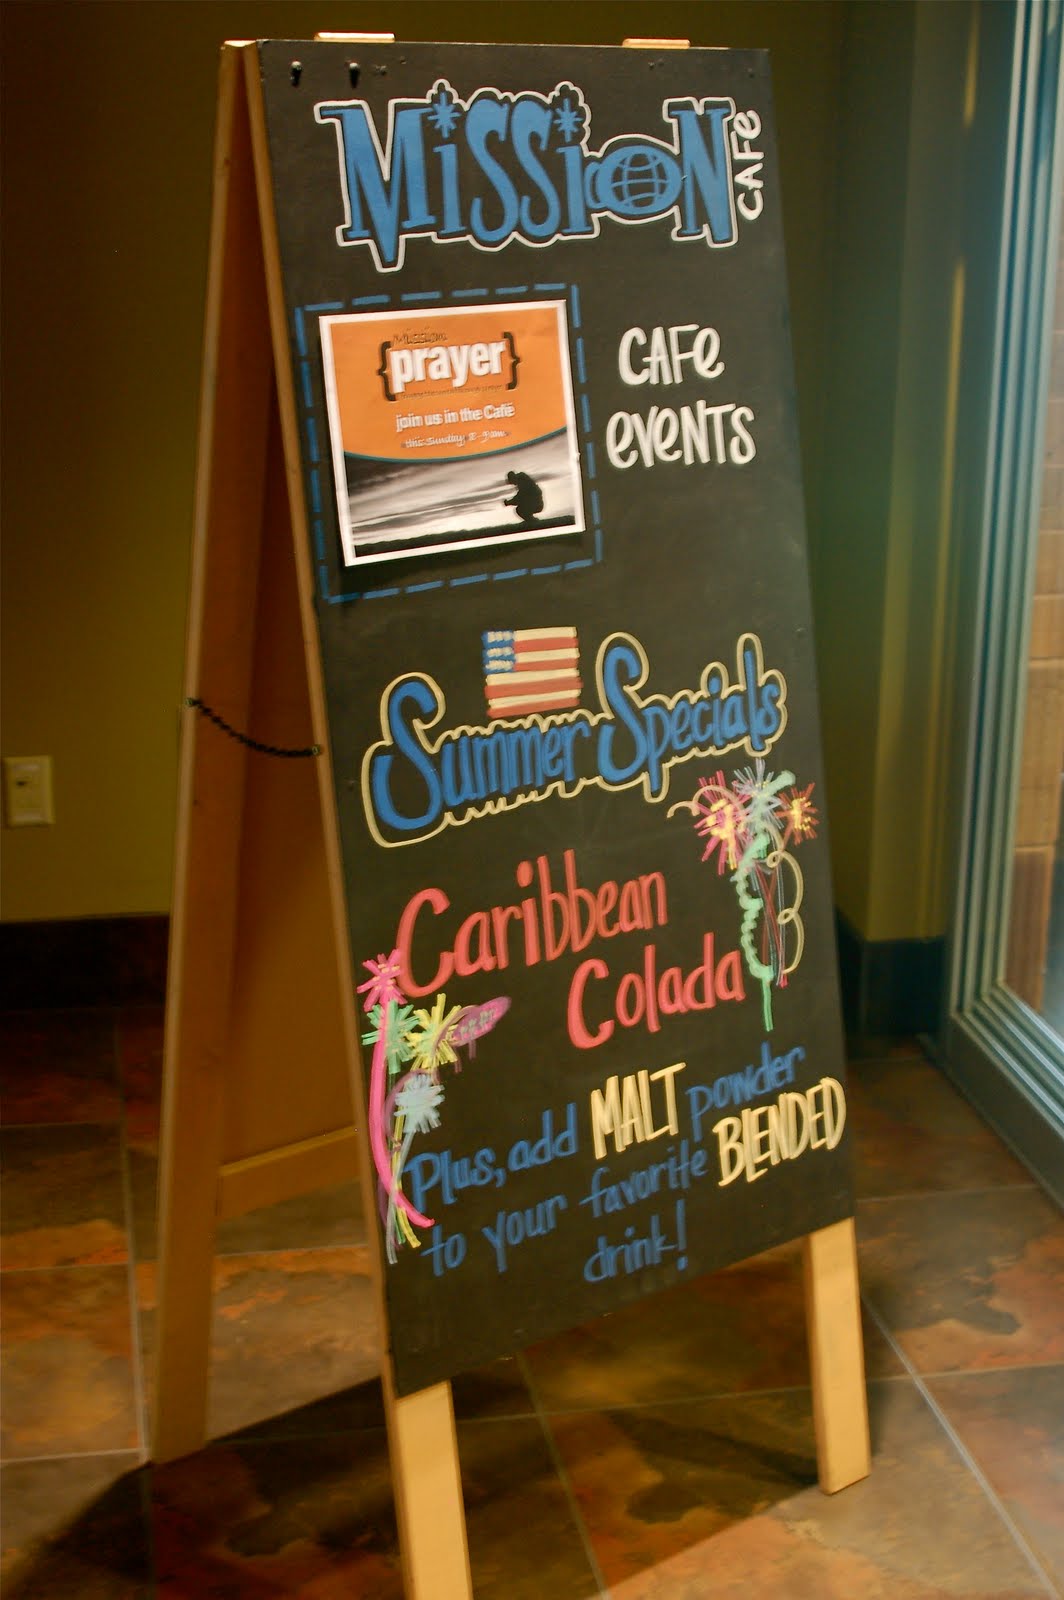 Mission
CAFe
Mission
{prayer}
join us in the Café
this Sunday 8 - 9 am
CAFe
eVENTS
Summer Specials
Caribbean
Colada
Plus, add MALT powder
to your favorite BLENDED
drink!